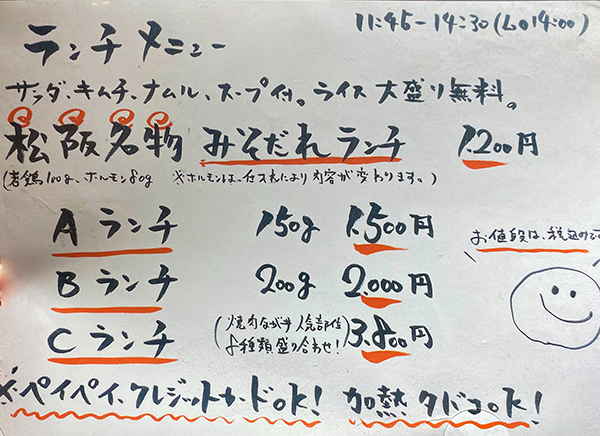 11:45-14:30(L.O 14:00)
ランチメニュー
サラダ、キムチ、ナムル、スープ付。ライス大盛り無料。
松阪名物 みそだれランチ 1.200円
(若鶏100g、ホルモン80g ※ホルモンは、仕入れにより内容が変わります。)
Aランチ 150g 1.500円
お値段は、税込みです
Bランチ 200g 2.000円
Cランチ (焼肉ながみ人気部位 8種類盛り合わせ!) 3.800円
※ペイペイ、クレジットカードOK! 加熱タバコOK!